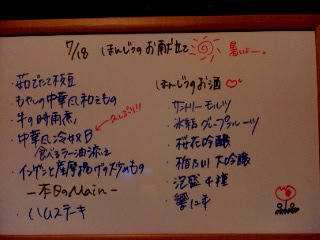 7/18 ほんじつのお献立て 暑いよー。
・茹でたて枝豆
・もやしの中華風和えもの
・牛の時雨煮
・中華風冷奴 久しぶり!!
食べるラー油添え
・インゲンと薩摩揚げの炒めもの
－本日のMain－
・ハムステーキ
ほんじつのお酒
・サントリー モルツ
・氷結グレープフルーツ
・桜花吟醸
・大吟醸
・泡盛 4種
・響 12年